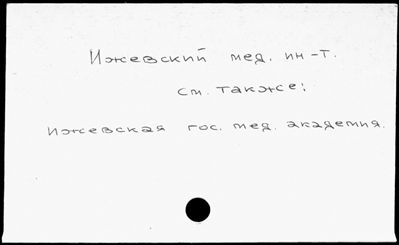 Ижевский мед. ин-т.
см. также:
Ижевская гос. мед. академия.